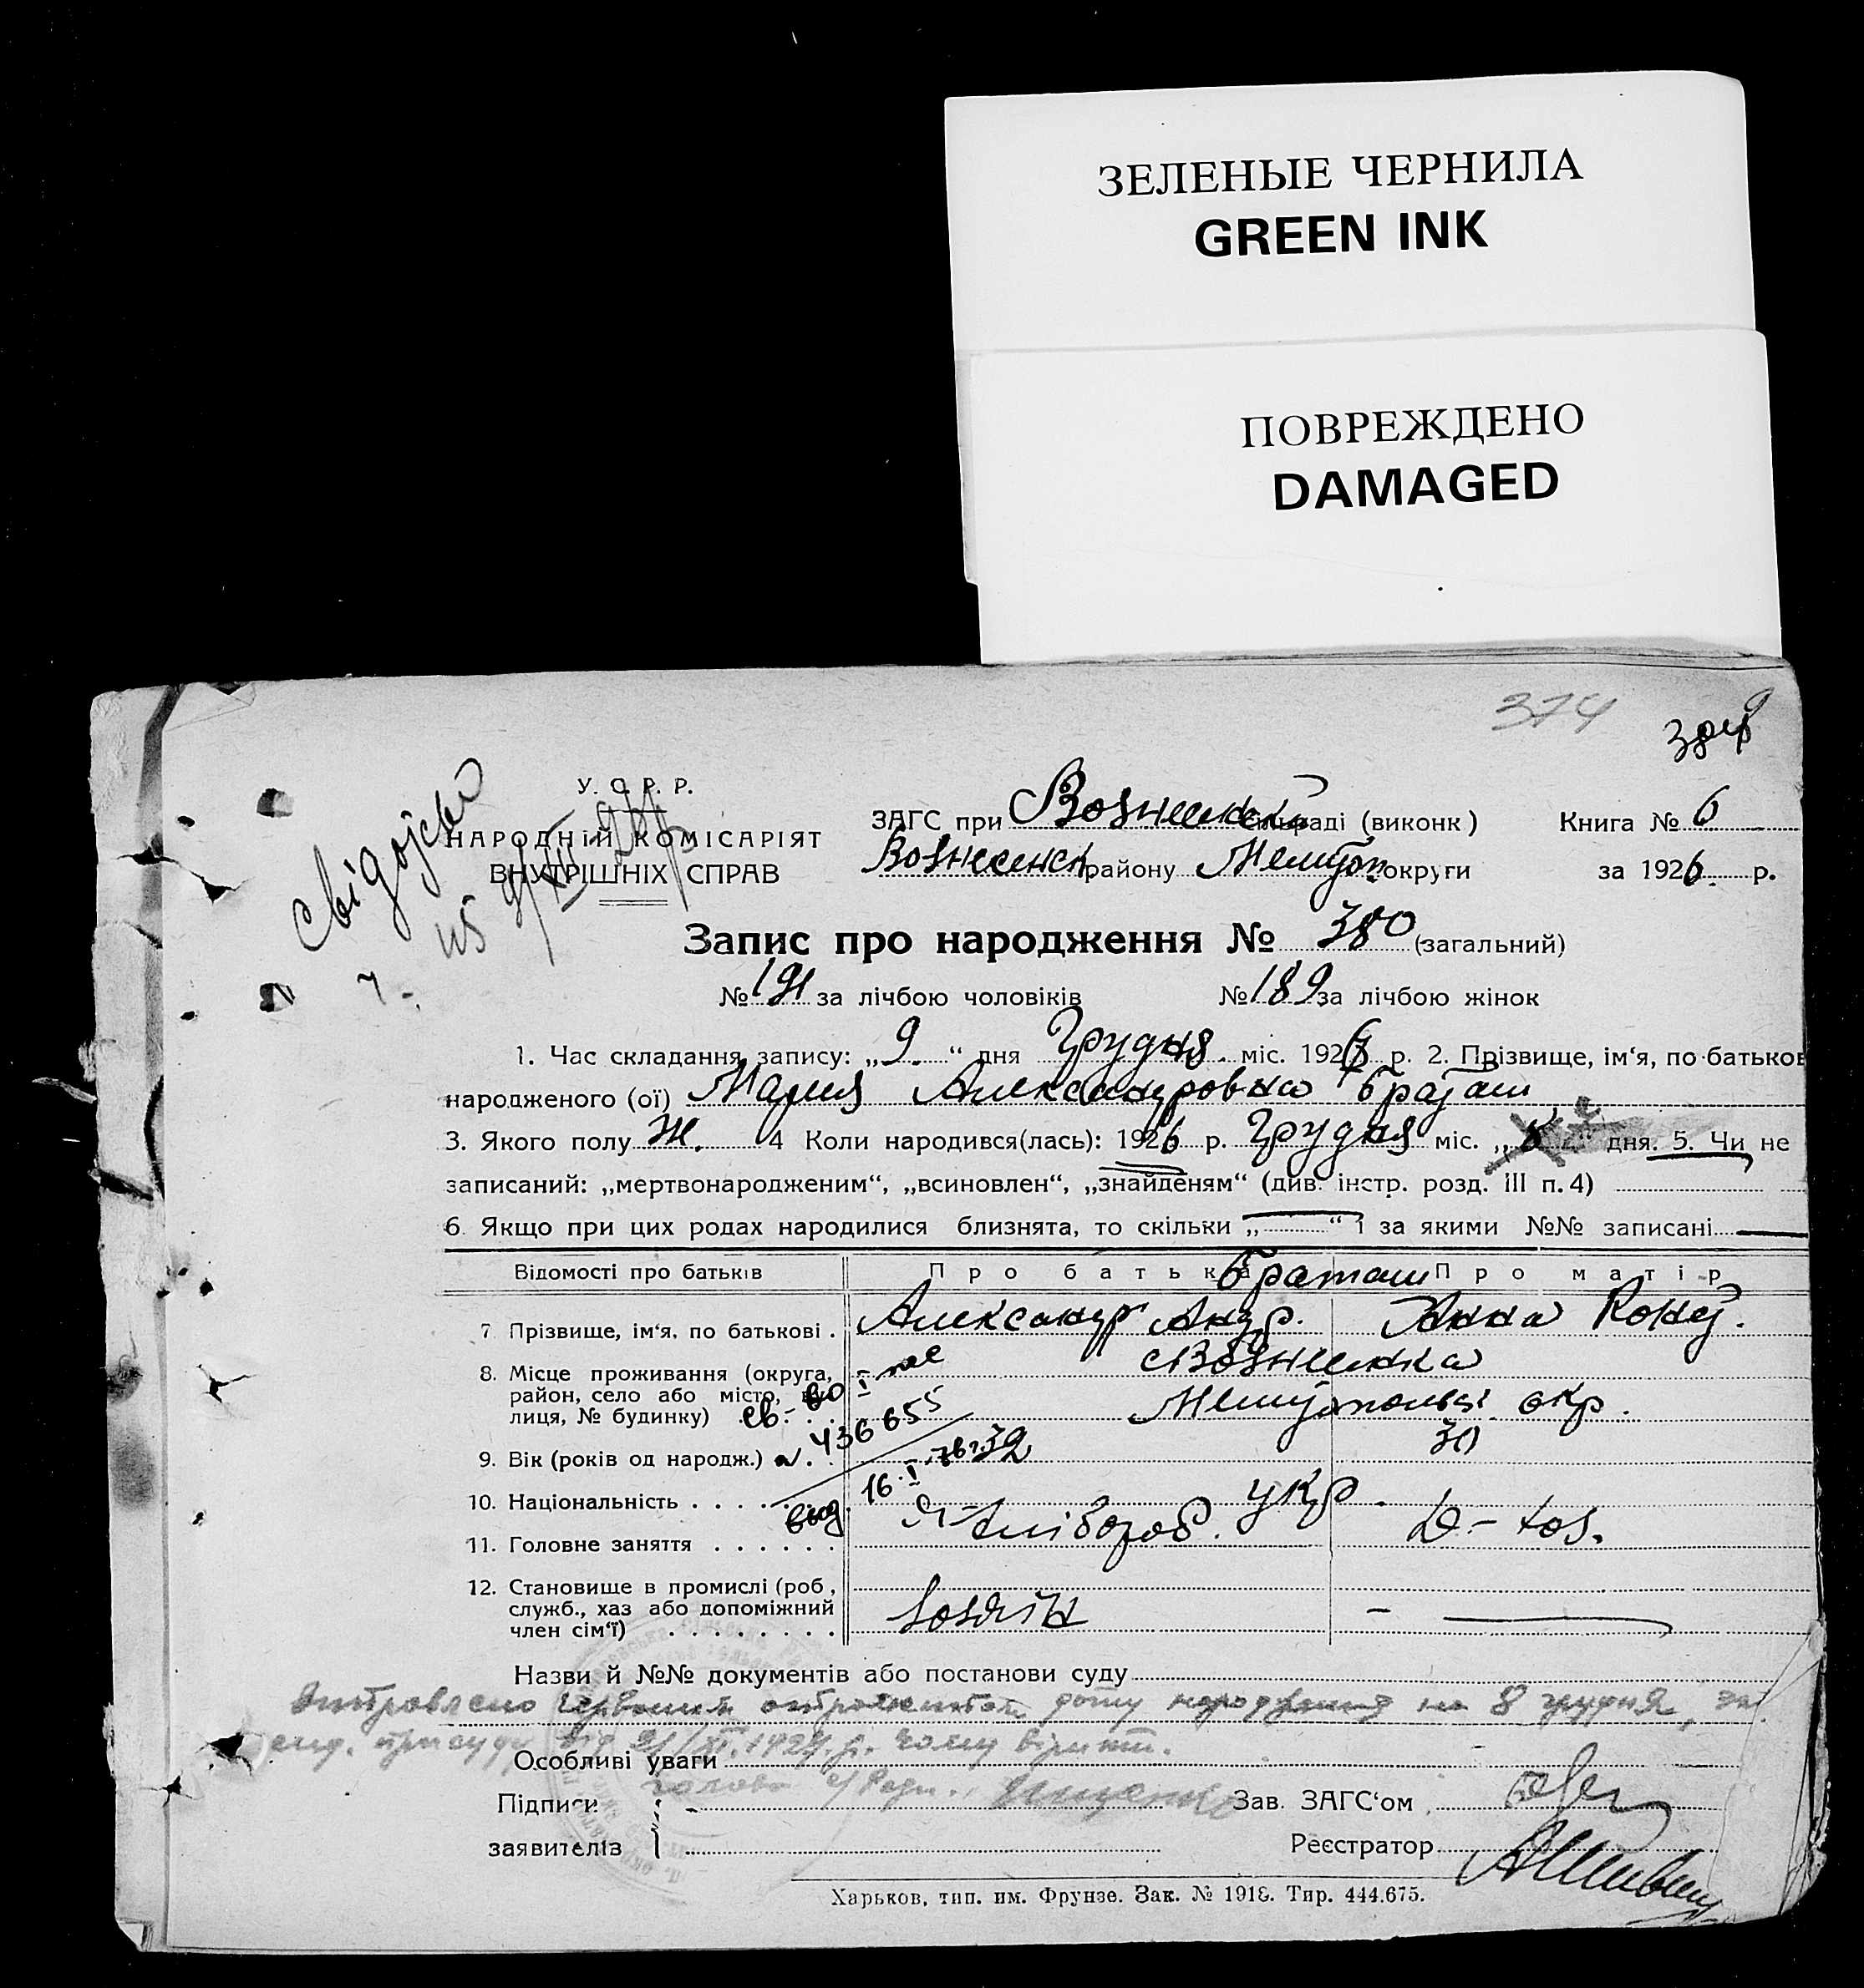 ЗЕЛЕНЫЕ ЧЕРНИЛА
GREEN INK
ПОВРЕЖДЕНО
DAMAGED
374
У. С. Р. Р.
НАРОДНІЙ КОМІСАРІЯТ
ВНУТРІШНІХ СПРАВ
ЗАГС при Вознесенській сільраді (виконк) Книга № 6
Вознесенск району Мелітоп округи за 1926 р.
Запис про народження № 380 (загальний)
№ 191 за лічбою чоловіків № 189 за лічбою жінок
1. Час складання запису: „9“ дня Грудня міс. 1926 р. 2. Прізвище, ім‘я, по батьков
народженого (ої) Мария Александровна Браташ
3. Якого полу Ж. 4 Коли народився(лась): 1926 р. Грудня міс. „ “ дня. 5. Чи не
записаний: „мертвонародженим“, „всиновлен“, „знайденям“ (див. інстр. розд. III п. 4)
6. Якщо при цих родах народилися близнята, то скільки „ “ і за якими №№ записані
Відомості про батьків Про батька Про матір
Браташ
7. Прізвище, ім‘я, по батькові . Александр Андр. Анна Конд.
8. Місце проживання (округа, район, село або місто, вулиця, № будинку) с Вознесенка
Мелітопольськ. окр.
св-во I 436655
9. Вік (років од народж.) 32 30
10. Національність укр.
вид. 16.I.
11. Головне заняття хлібороб. д-гос.
12. Становище в промислі (роб, служб., хаз або допоміжний член сім‘ї) хозяїн —
Назви й №№ документів або постанови суду
народження на 8 грудня,
Особливі уваги
голова с/Ради
Підписи заявителів
Зав. ЗАГС‘ом
Реєстратор
Харьков, тип. им. Фрунзе. Зак. № 1918. Тир. 444.675.